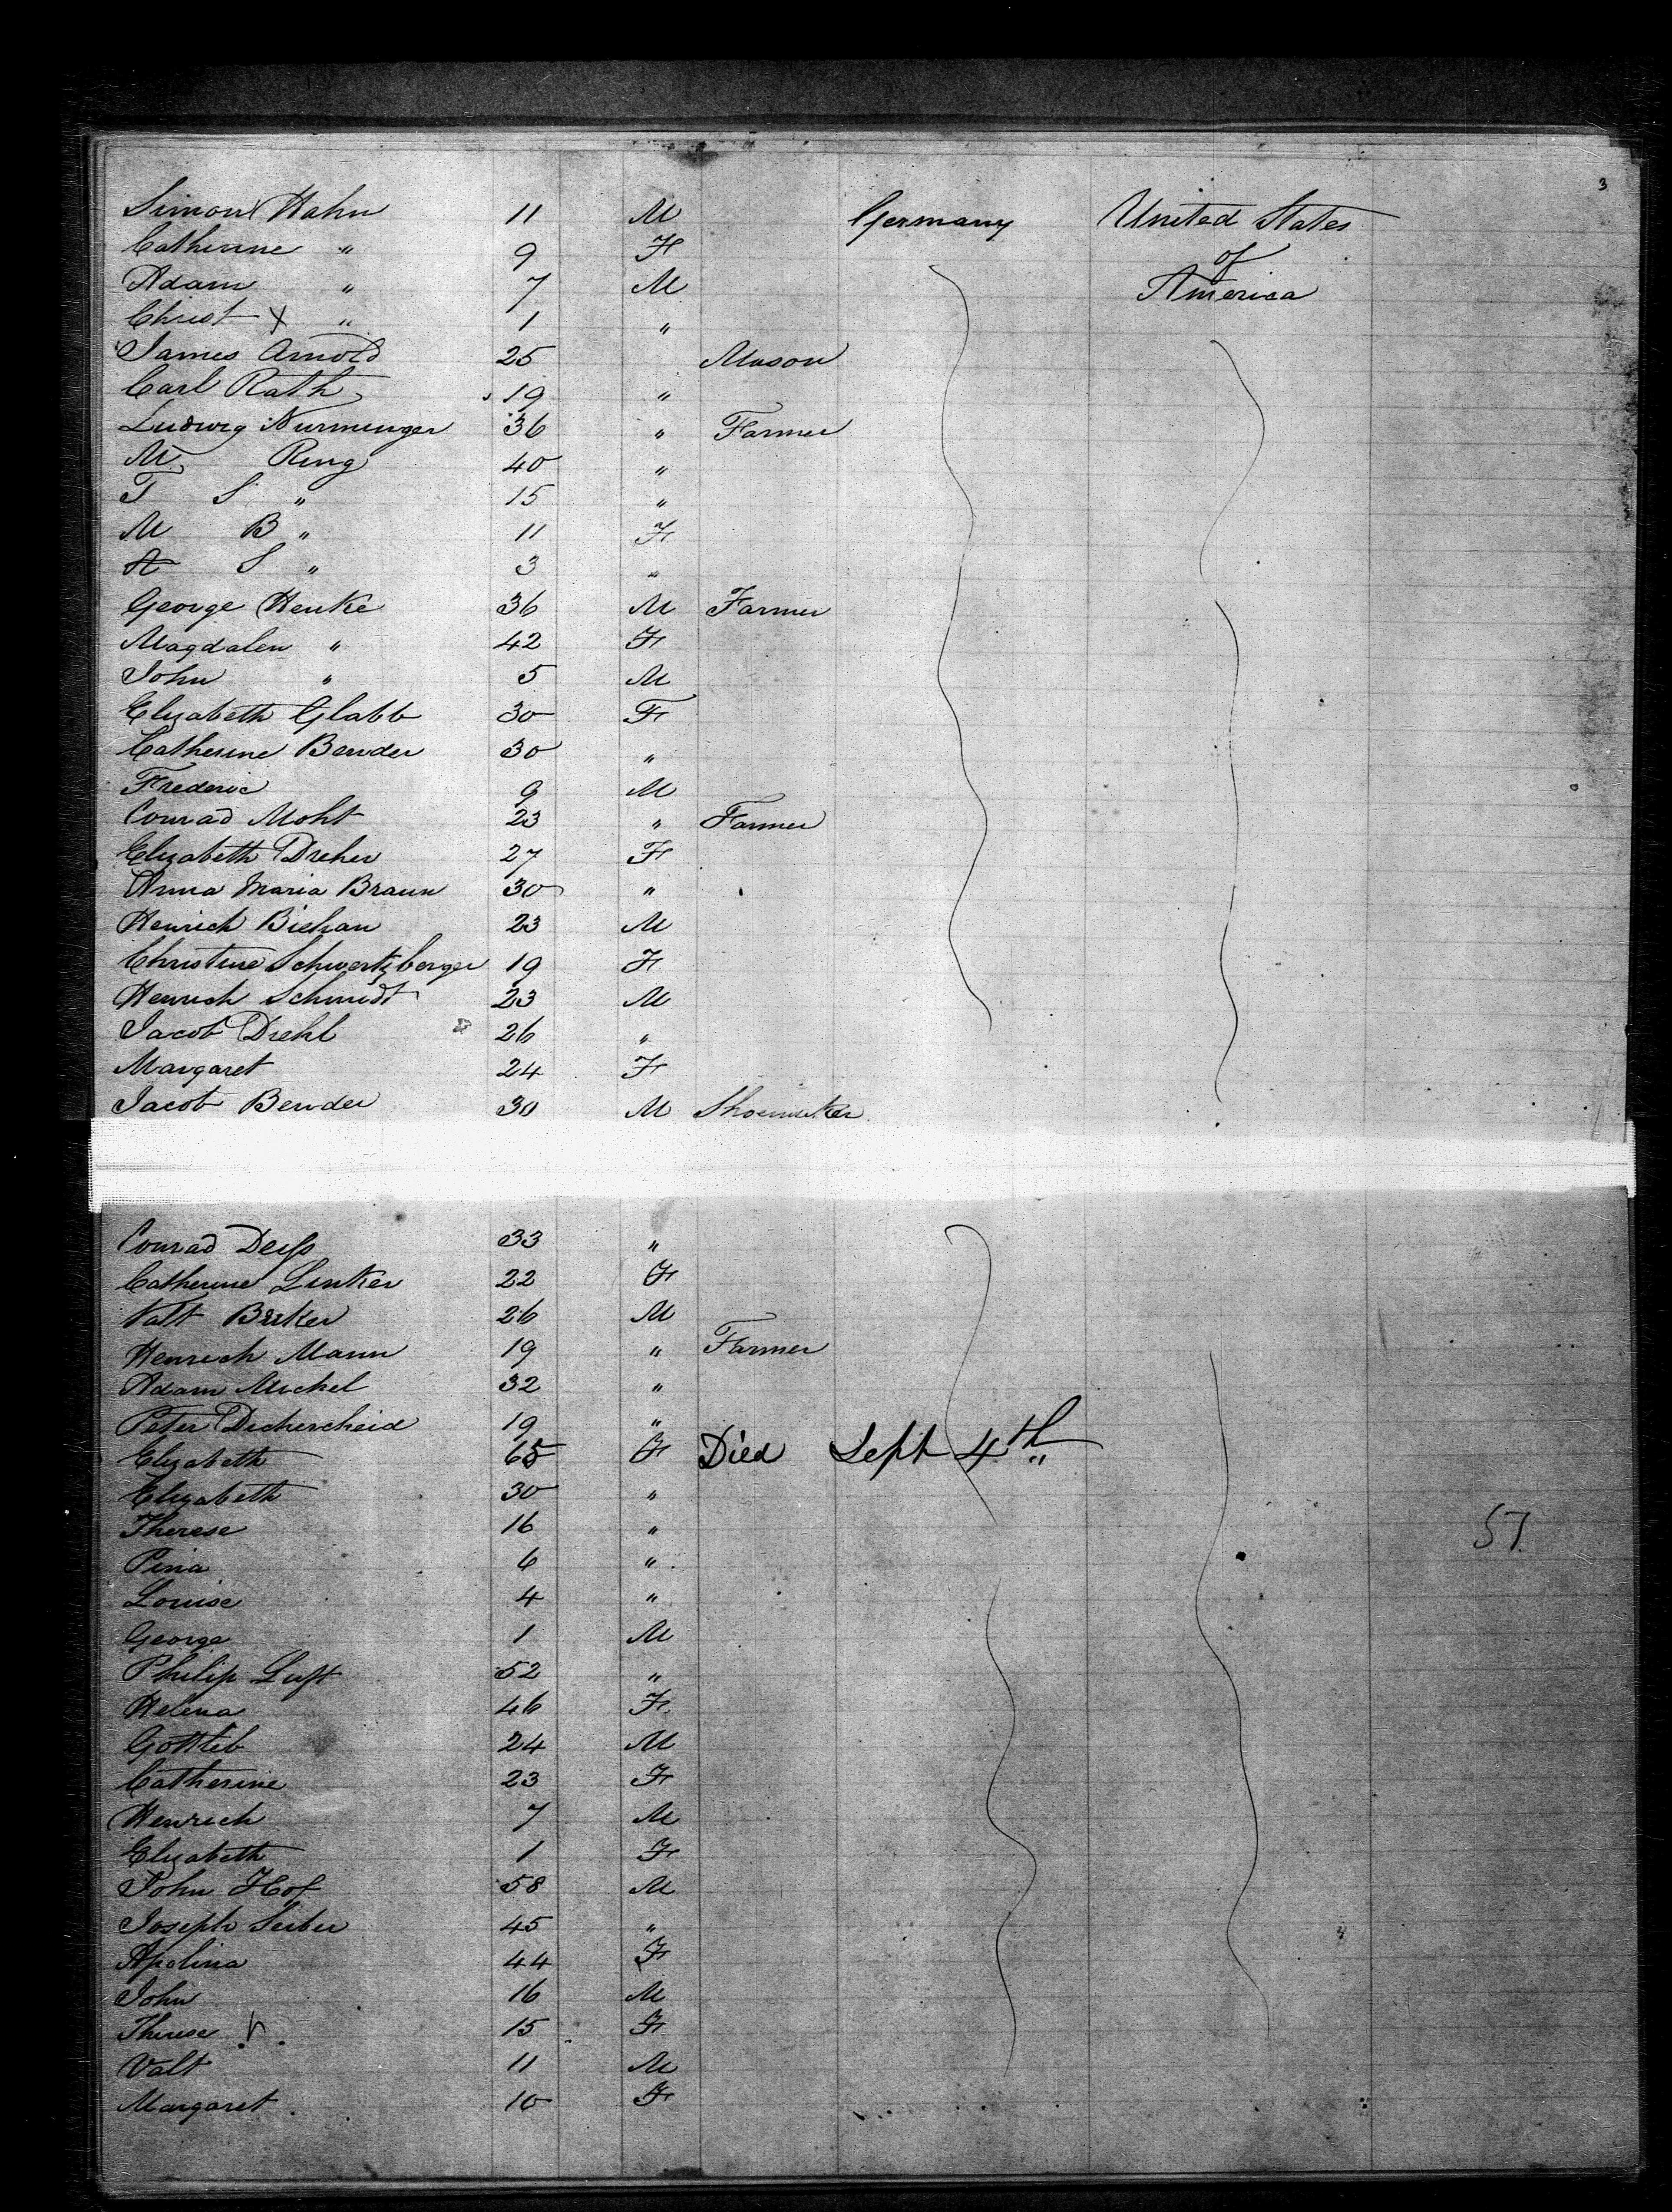 3
Simon Hahn 11 M Germany United States
Catherine " 9 F of
Adam " 7 M America
Christ X " 1 "
James Arnold 25 Mason
Carl Rath 19 "
Ludwig Nurminger 36 " Farmer
M. Ring 40 "
T S " 15 "
M B " 11 F
A S " 3 "
George Henke 36 M Farmer
Magdalen " 42 F
John " 5 M
Elizabeth Glabb 30 F
Catherine Bender 30 "
Frederic 9 M
Conrad Moht 23 " Farmer
Elizabeth Dreher 27 F
Anna Maria Braun 30 "
Henrich Biehan 23 M
Christine Schwertzberger 19 F
Henrich Schmidt 23 M
Jacob Diehl 26 "
Margaret 24 F
Jacob Bender 30 M Shoemaker
Conrad Deiss 33 "
Catherine Linker 22 F
Valt 26 M
Henrich Mann 19 " Farmer
Adam Michel 32 "
Peter Dicherscheid 19 "
Elizabeth 65 F Died Sept 4th "
Elizabeth 30 "
Therese 16 "
Pina 6 "
Louise 4 "
George 1 M
Philip Luft 52 "
Helena 46 F
Gottleb 24 M
Catherine 23 F
Henrich 7 M
Elizabeth 1 F
John Hof 58 M
Joseph Seiber 45 "
Apolina 44 F
John 16 M
Therese 15 F
Valt 11 M
Margaret 10 F